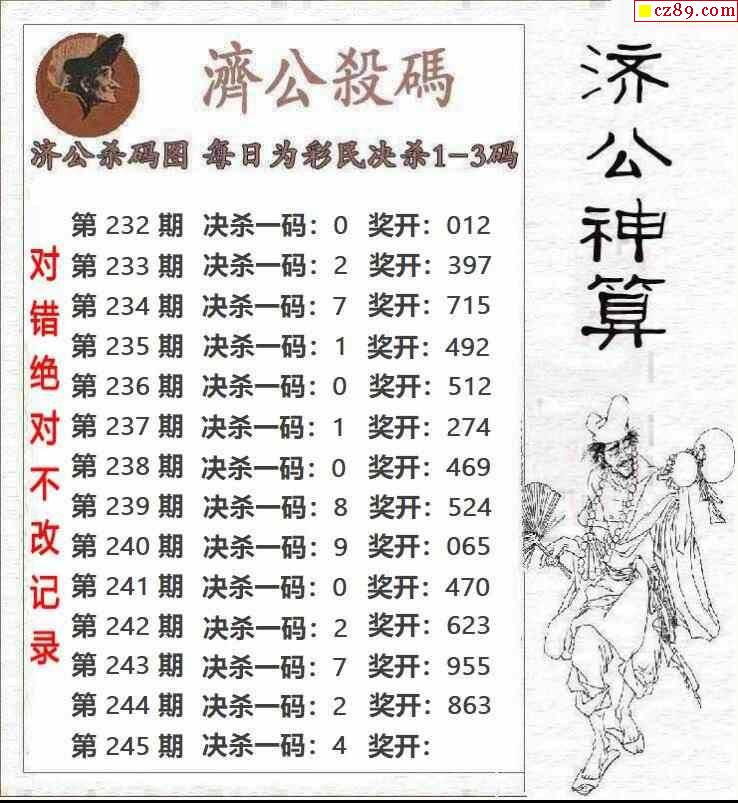 cz89.com
濟公殺碼
济公杀码图 每日为彩民决杀1-3码
第 232 期 决杀一码：0 奖开：012
第 233 期 决杀一码：2 奖开：397
第 234 期 决杀一码：7 奖开：715
第 235 期 决杀一码：1 奖开：492
第 236 期 决杀一码：0 奖开：512
第 237 期 决杀一码：1 奖开：274
第 238 期 决杀一码：0 奖开：469
第 239 期 决杀一码：8 奖开：524
第 240 期 决杀一码：9 奖开：065
第 241 期 决杀一码：0 奖开：470
第 242 期 决杀一码：2 奖开：623
第 243 期 决杀一码：7 奖开：955
第 244 期 决杀一码：2 奖开：863
第 245 期 决杀一码：4 奖开：
对错绝对不改记录
济公神算